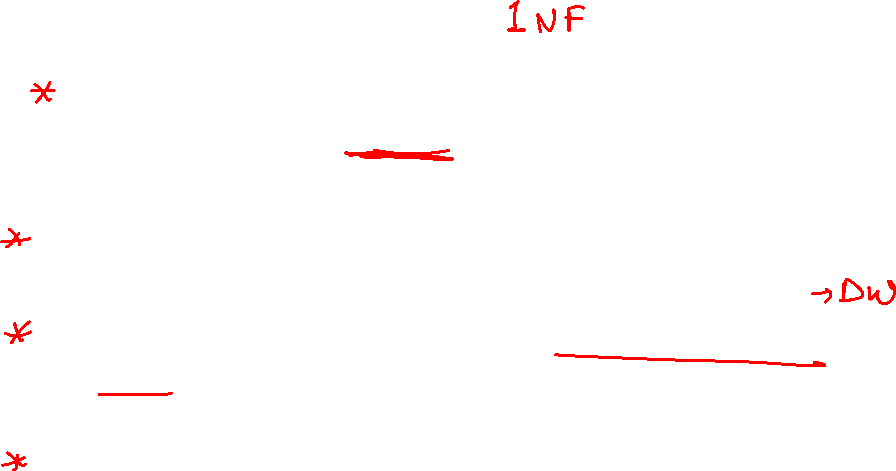 1NF
*
*
→DW
*
*